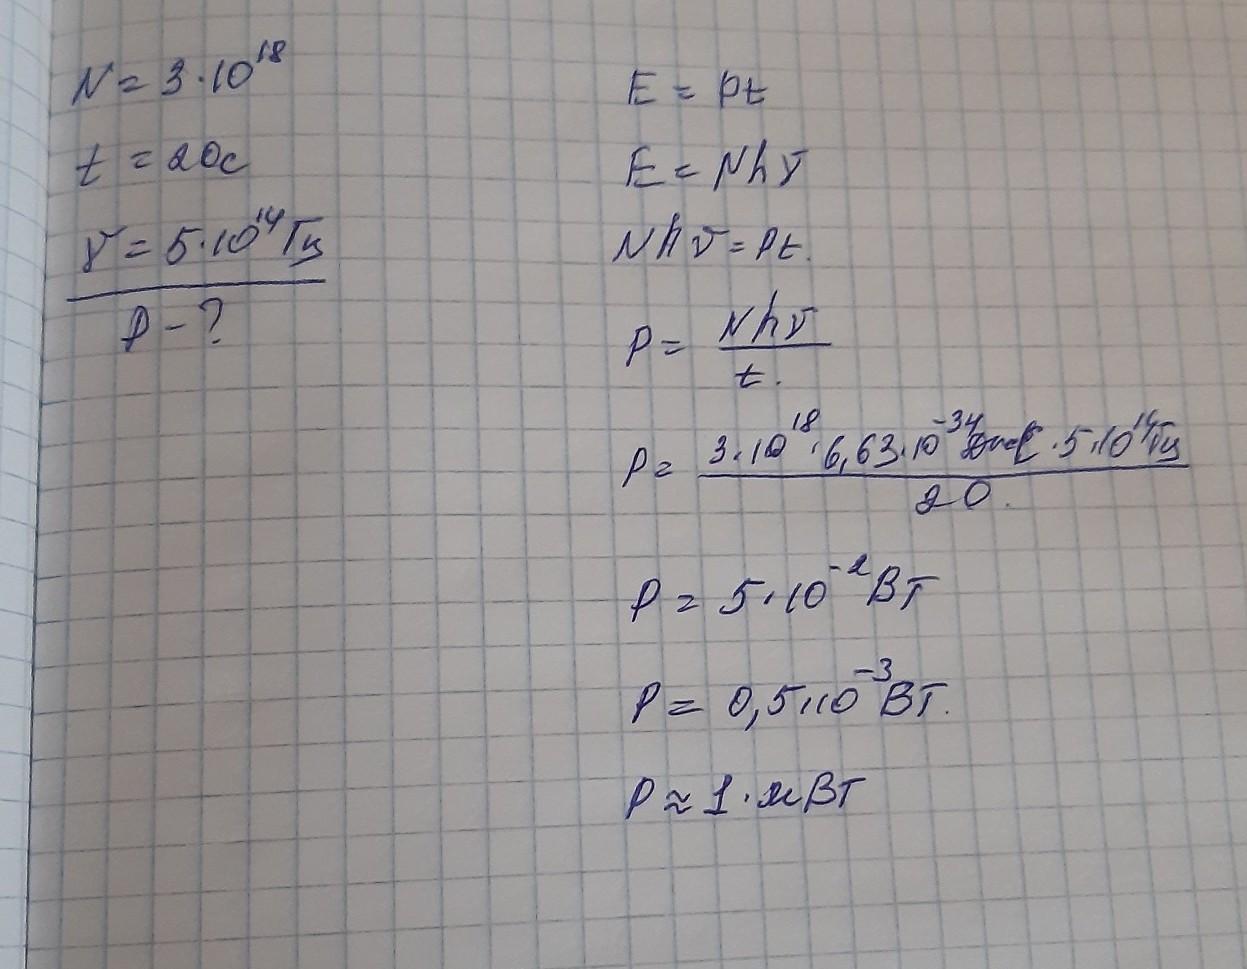 N = 3·10¹⁸
t = 20с
γ = 5·10¹⁴ Гц
P - ?
E = Pt
E = Nhγ
Nhγ = Pt.
P = Nhγ / t.
P = 3·10¹⁸·6,63·10⁻³⁴ Дж·с·5·10¹⁴Гц / 20.
P = 5·10⁻² Вт
P = 0,5·10⁻³ Вт.
P ≈ 1·мВт